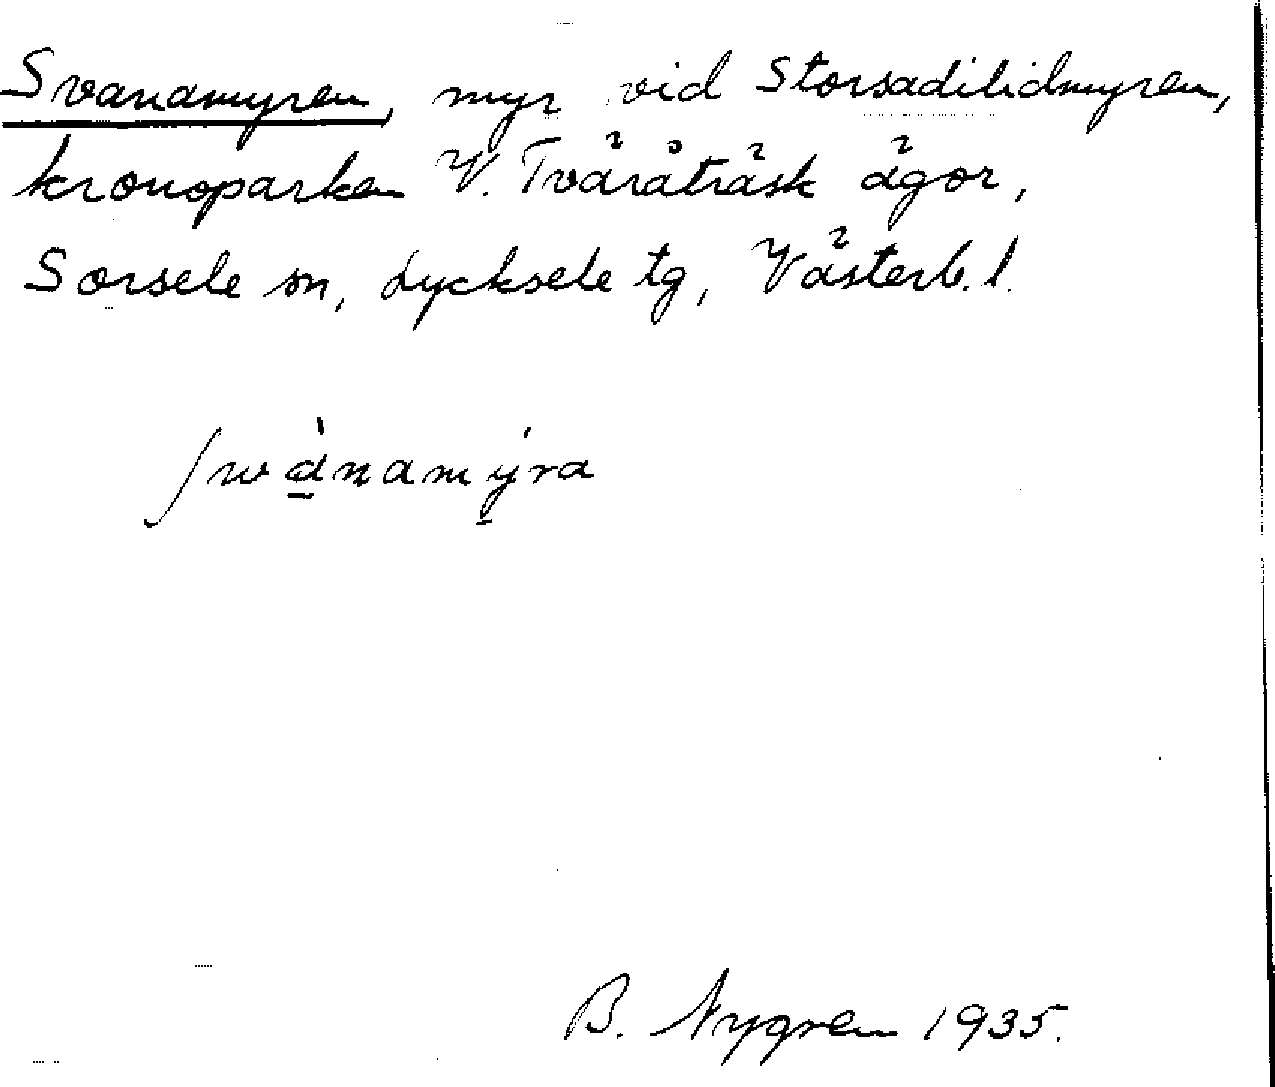 Svanamyren, myr vid Storsadilidmyren,
kronoparken V. Tväråträsk ägor,
Sorsele sn, Lycksele tg, Västerb. l.
ʃwà̲namý̲ra
B. Nygren 1935.